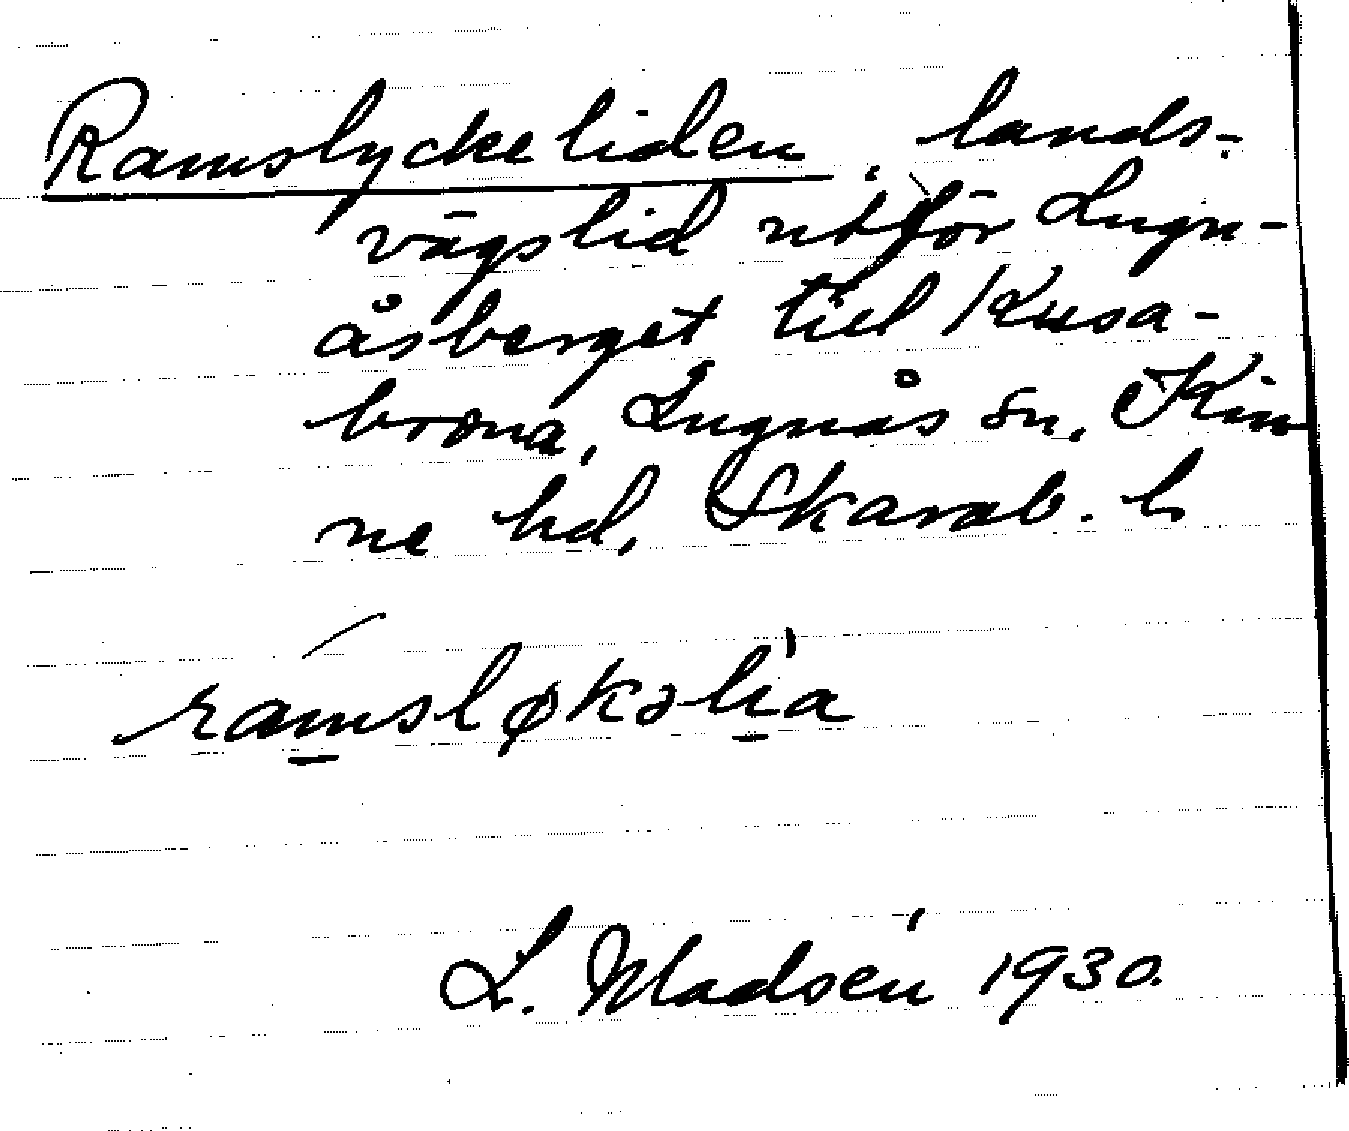 Ramslyckeliden, lands-
vägslid utför Lugn-
åsberget till Kusa-
boona, Lugnås sn, Kin
ne hd, Skarab. l.
ramsløkəlia
L. Madsén 1930.